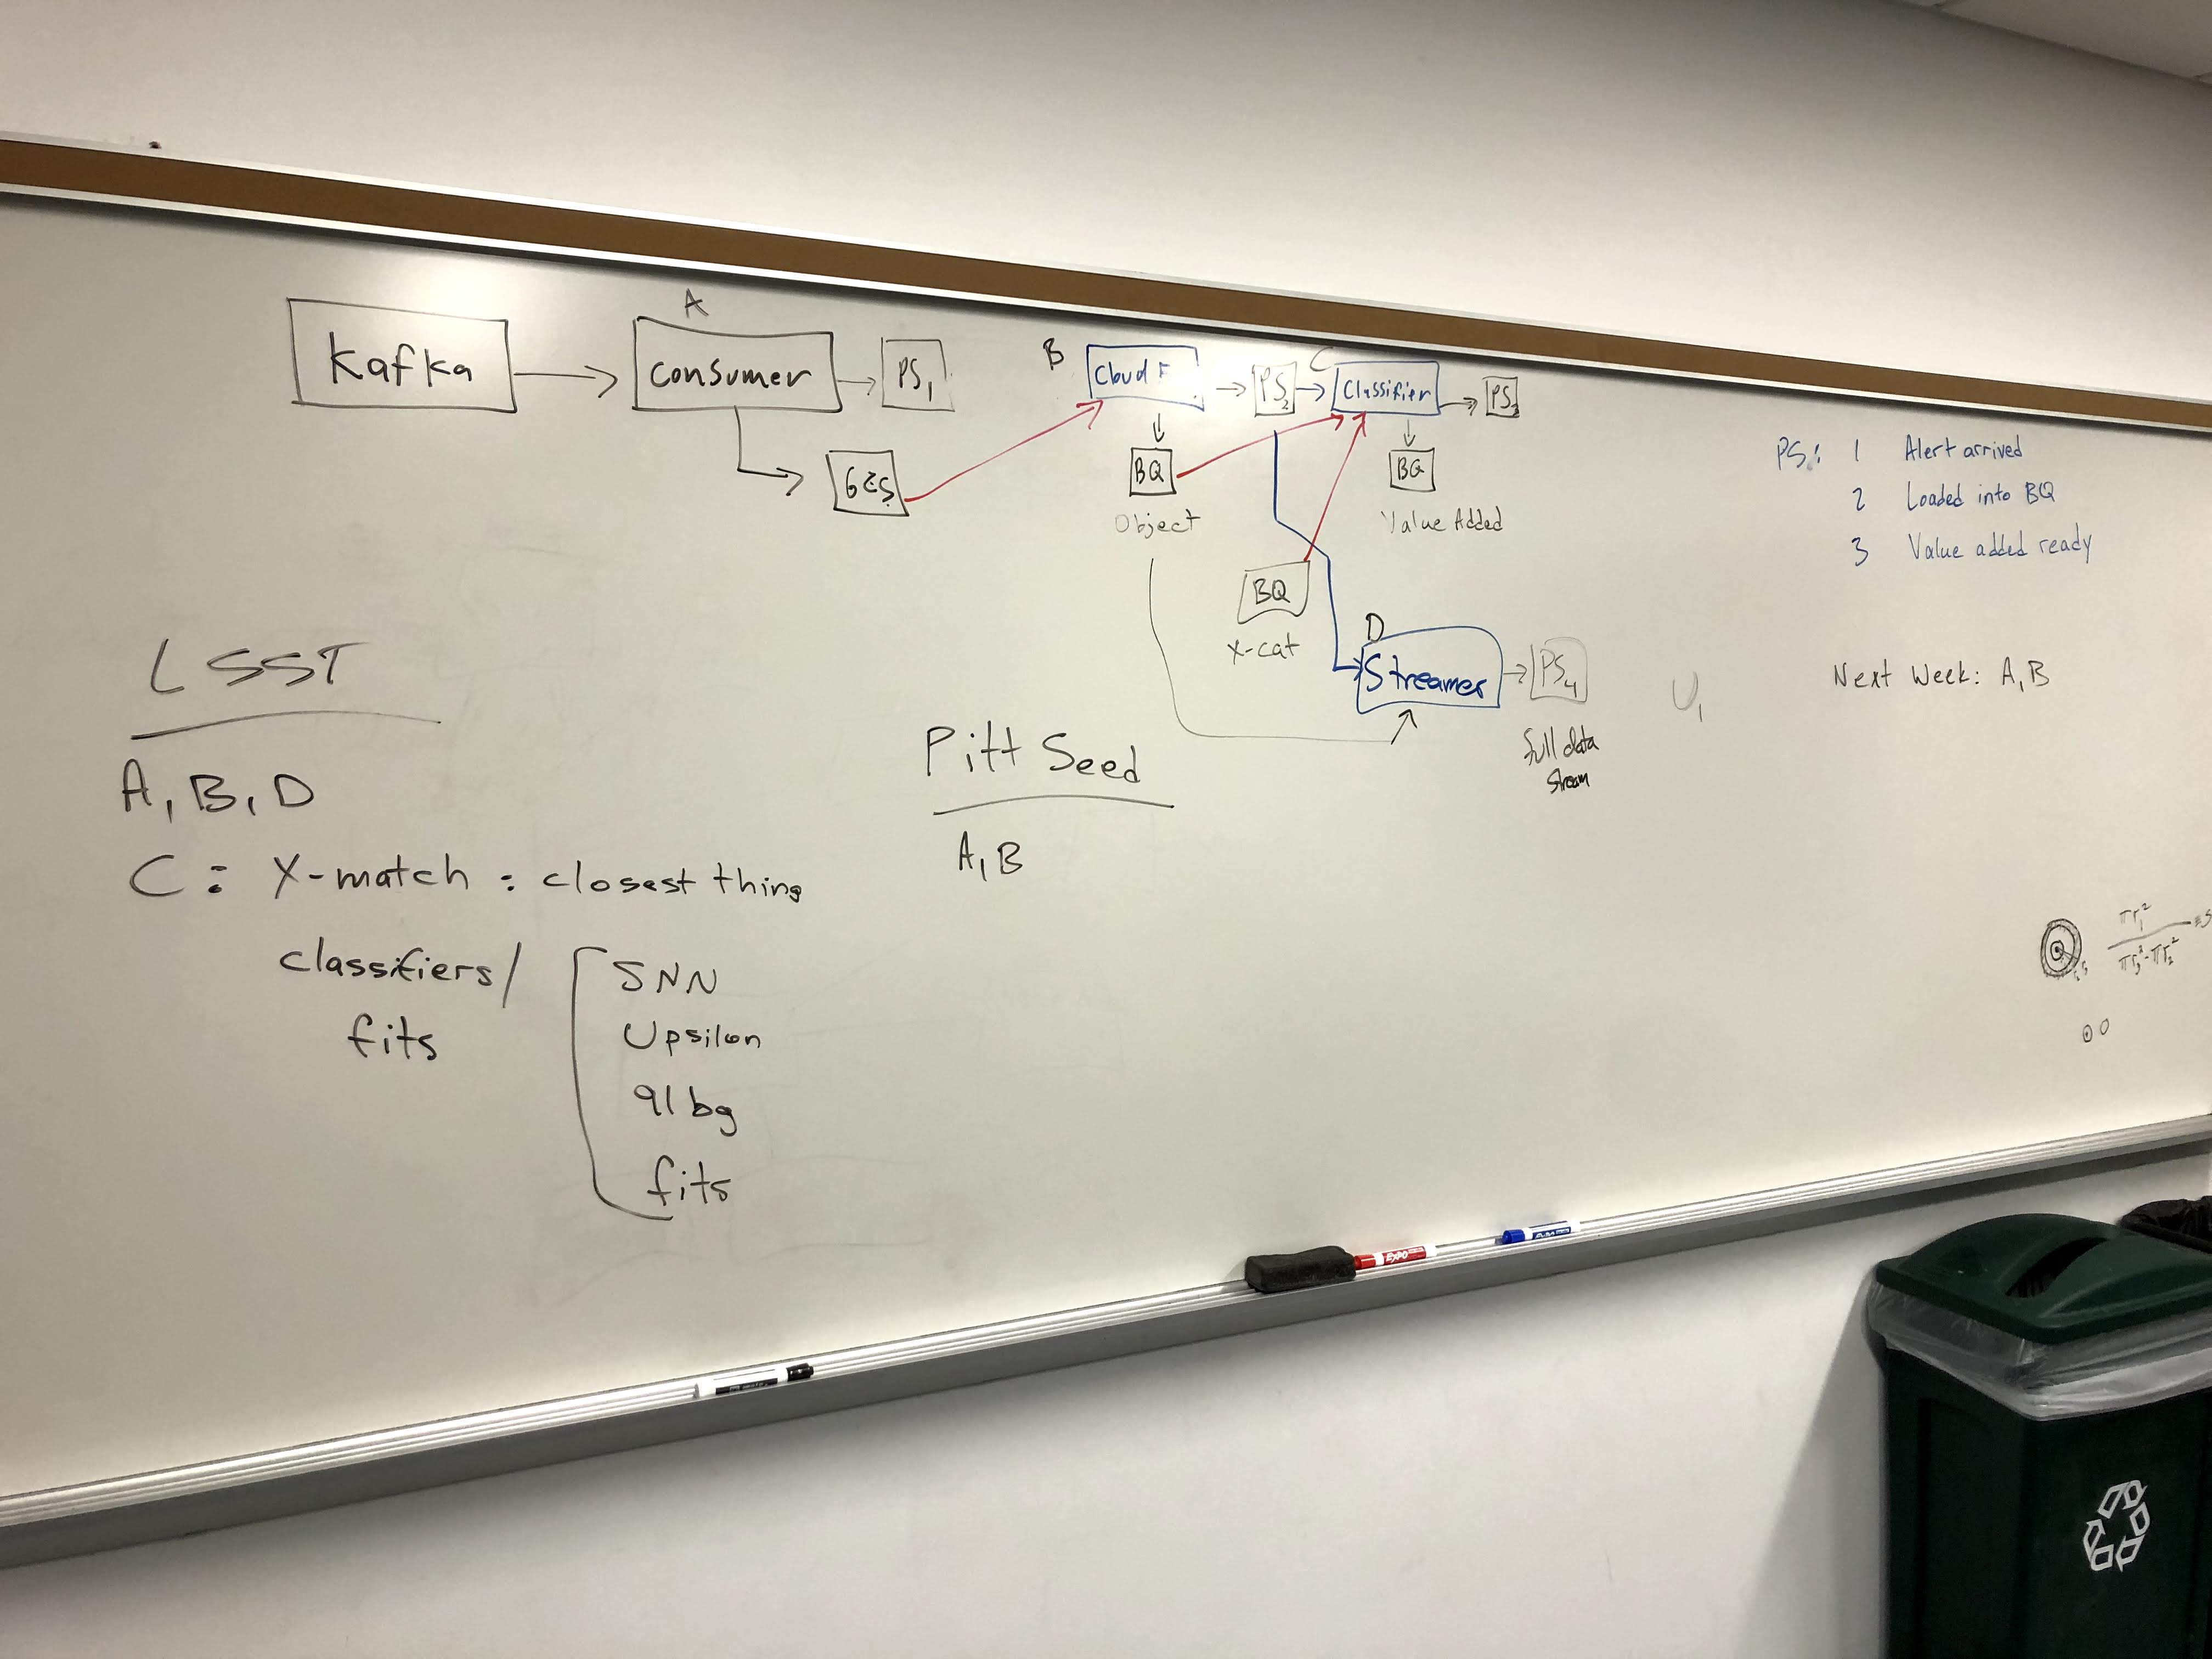 A
Kafka
consumer
PS1
GCS
B
Cloud F
PS2
C
Classifier
PS3
BQ
Object
BQ
Value Added
BQ
X-cat
D
Streamer
PS4
full data
stream
U1
PS: 1 Alert arrived
2 Loaded into BQ
3 Value added ready
Next Week: A, B
LSST
A, B, D
C: X-match: closest thing
classifiers/
fits
SNN
Upsilon
91bg
fits
Pitt Seed
A, B
EXPO